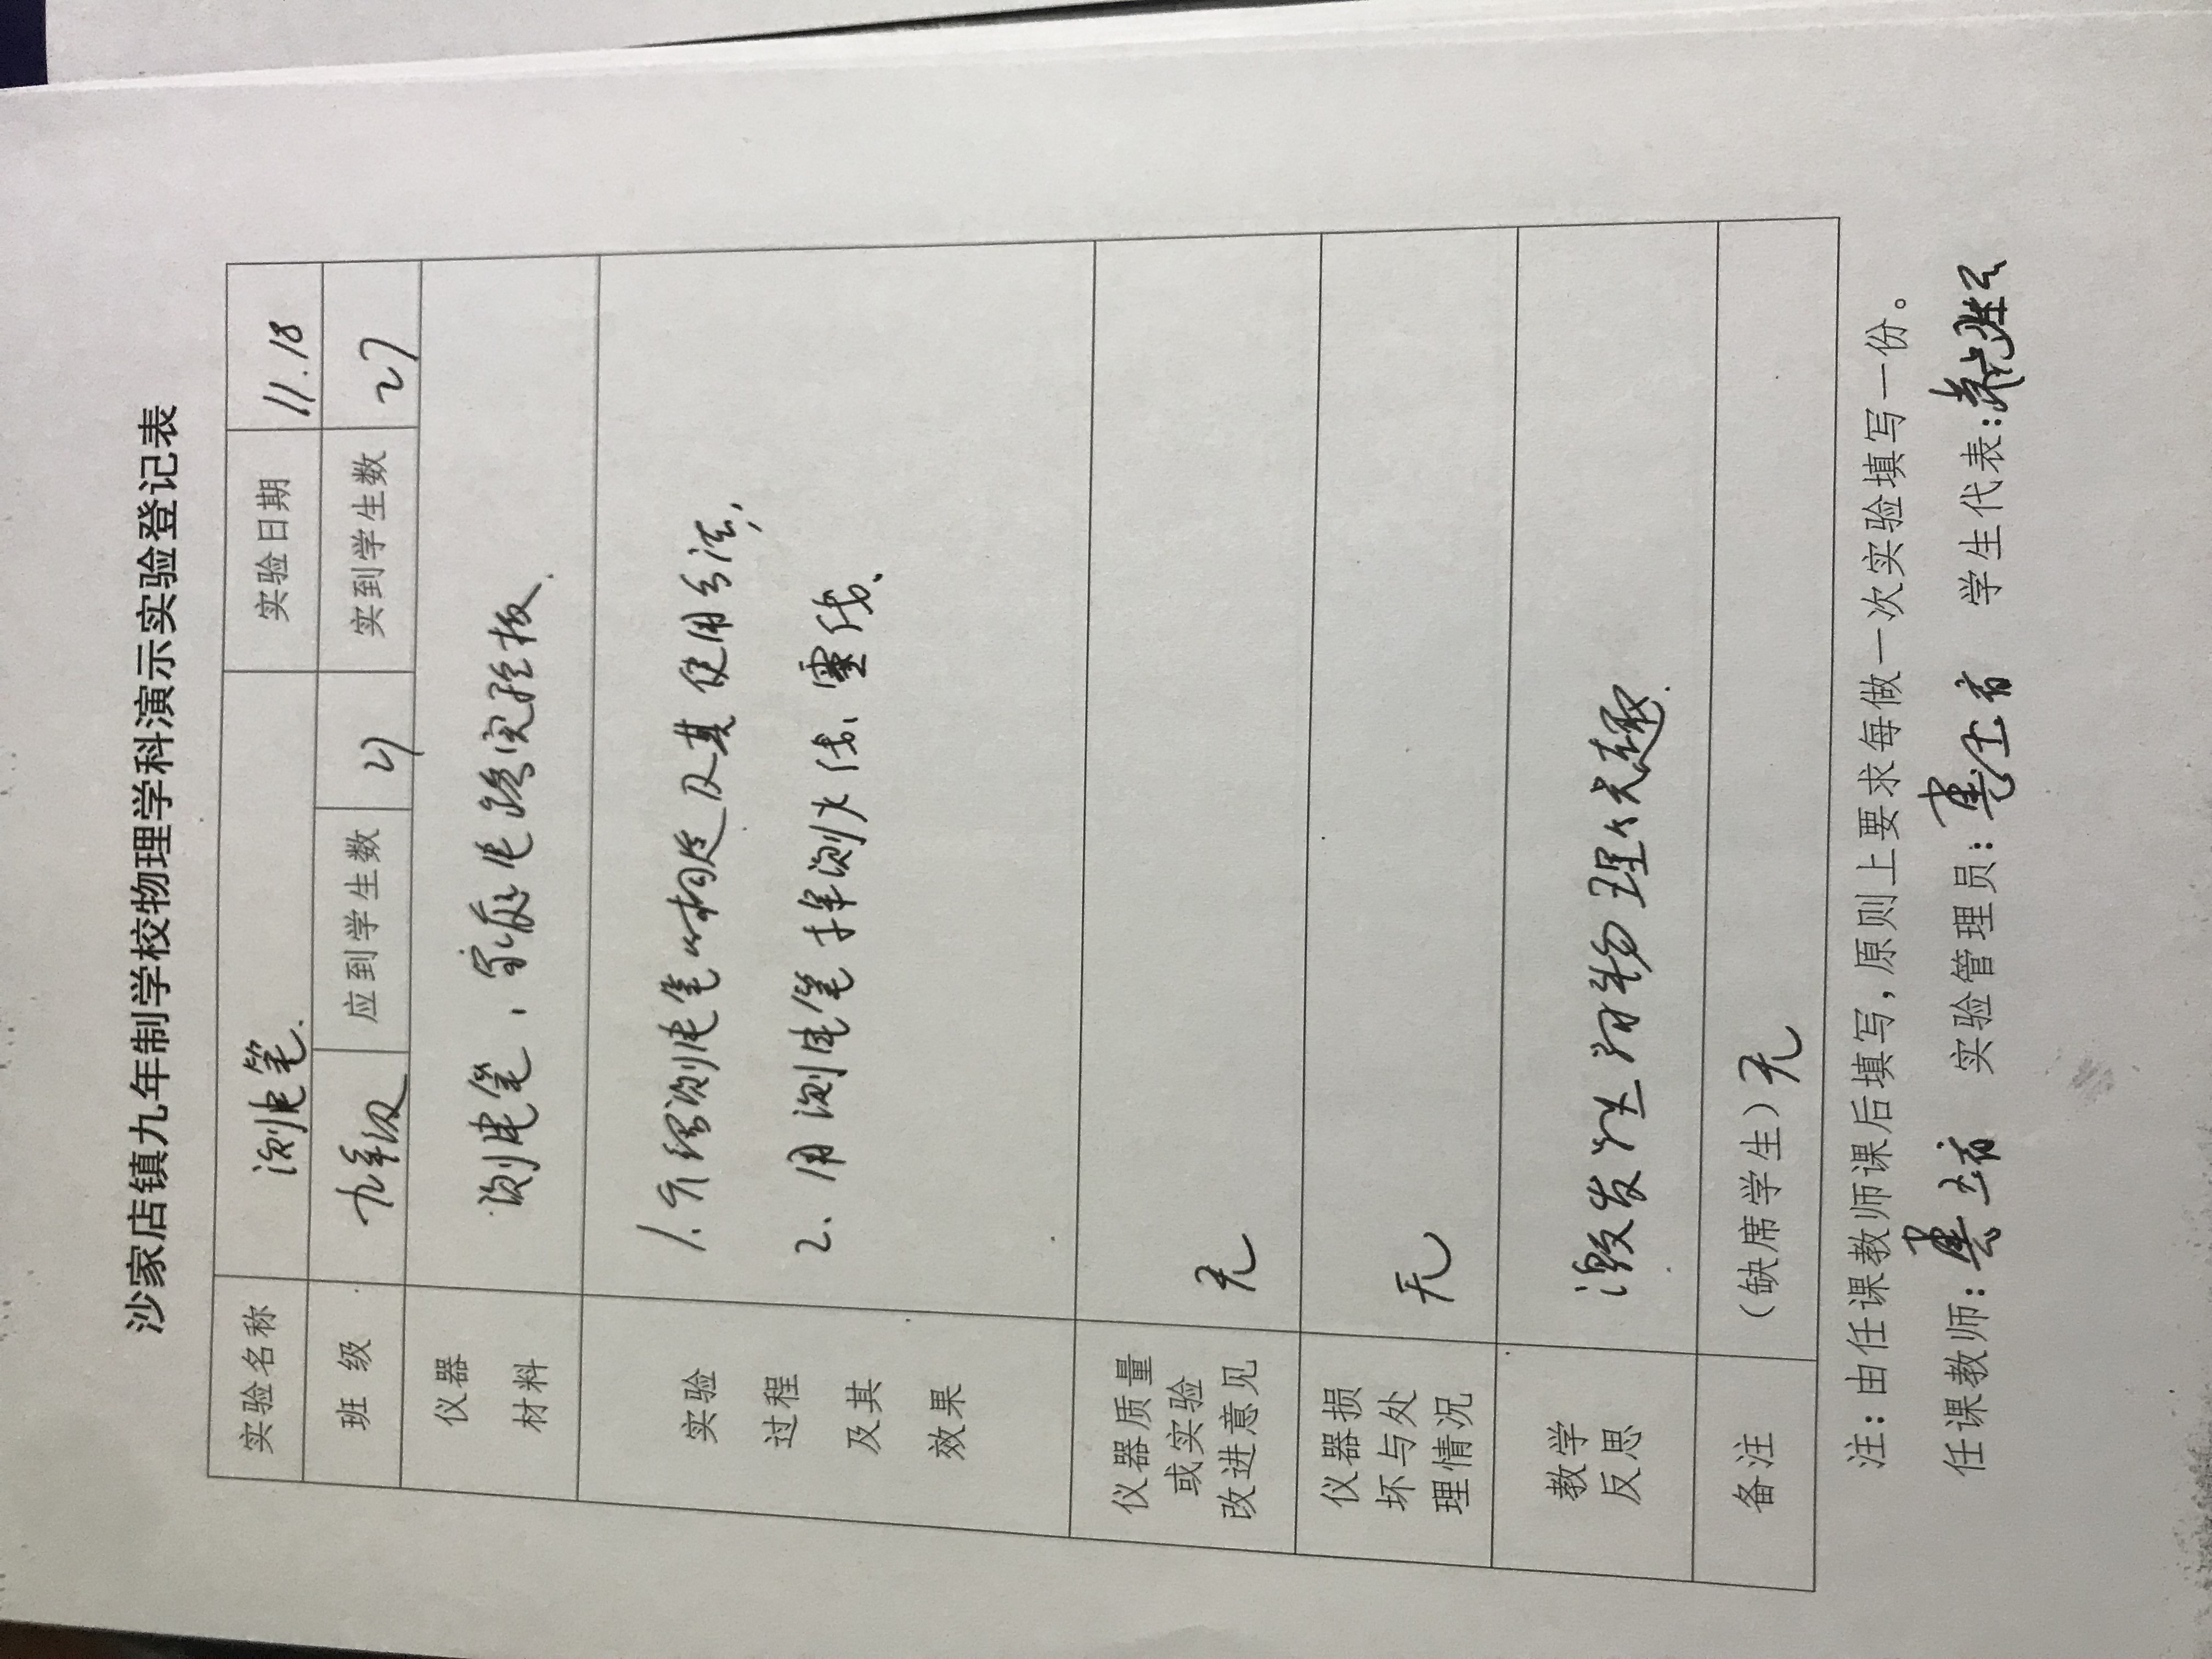 沙家店镇九年制学校物理学科演示实验登记表
实验名称 测电笔. 实验日期 11.18
班 级 九年级 应到学生数 27 实到学生数 27
仪器 材料 测电笔、家庭电路实验板.
实验 过程 及其 效果
1.介绍测电笔的构造及其使用方法,
2.用测电笔 测火线、零线、
仪器质量 或实验 改进意见 无
仪器损 坏与处 理情况 无
教学 反思 激发学生对物理兴趣.
备注 (缺席学生)无
注:由任课教师课后填写,原则上要求每做一次实验填写一份。
任课教师: 实验管理员: 学生代表: